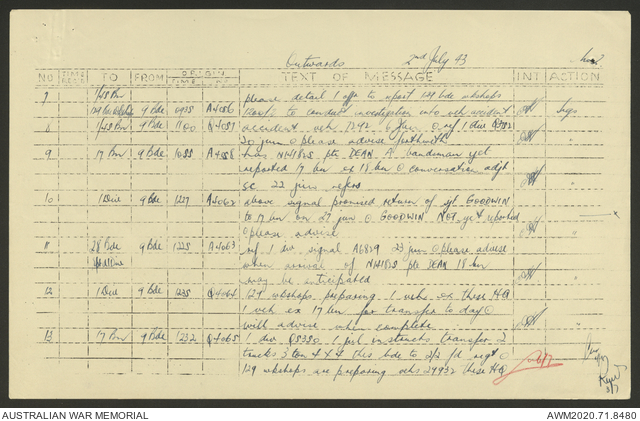 Outwards 2nd July 43
NO TIME RECD TO FROM ORIGIN TIME TEXT OF MESSAGE INT ACTION
7 1/48 Bn please detail 1 offr to report 129 bde wkshops
129 Bde Wkshps 9 Bde 0935 A4056 to conduct investigation into veh accident
8 1/48 Bn 9 Bde 1100 Q4057 accident veh 1292 6 Jun O ref 1 div
30 jun O please advise forthwith
9 17 Bn 9 Bde 1055 A4058 has N141825 pte DEAN A bandsman yet
reported 17 bn ex 18 bn O conversation adjt
SC 22 jun refers
10 1 Div 9 Bde 1227 A4062 above signal promised return of GOODWIN
to 17 bn on 27 jun O GOODWIN NOT yet reported
O please advise
11 28 Bde 9 Bde 1225 A4063 ref 1 div signal A6829 23 jun O please advise
when arrival of N141825 pte DEAN 18 bn
may be anticipated
12 1 Div 9 Bde 1235 Q4064 129 wkshops preparing 1 veh ex these HQ
1 veh ex 17 bn for transfer to day O
will advise when complete
13 17 Bn 9 Bde 1232 Q4065 1 div Q5380 1 jul instructs transfer 2
trucks 3 ton 4x4 this bde to 2/3 fd regt O
129 wkshops are preparing vehs 29932 these HQ
AUSTRALIAN WAR MEMORIAL
AWM2020.71.8480